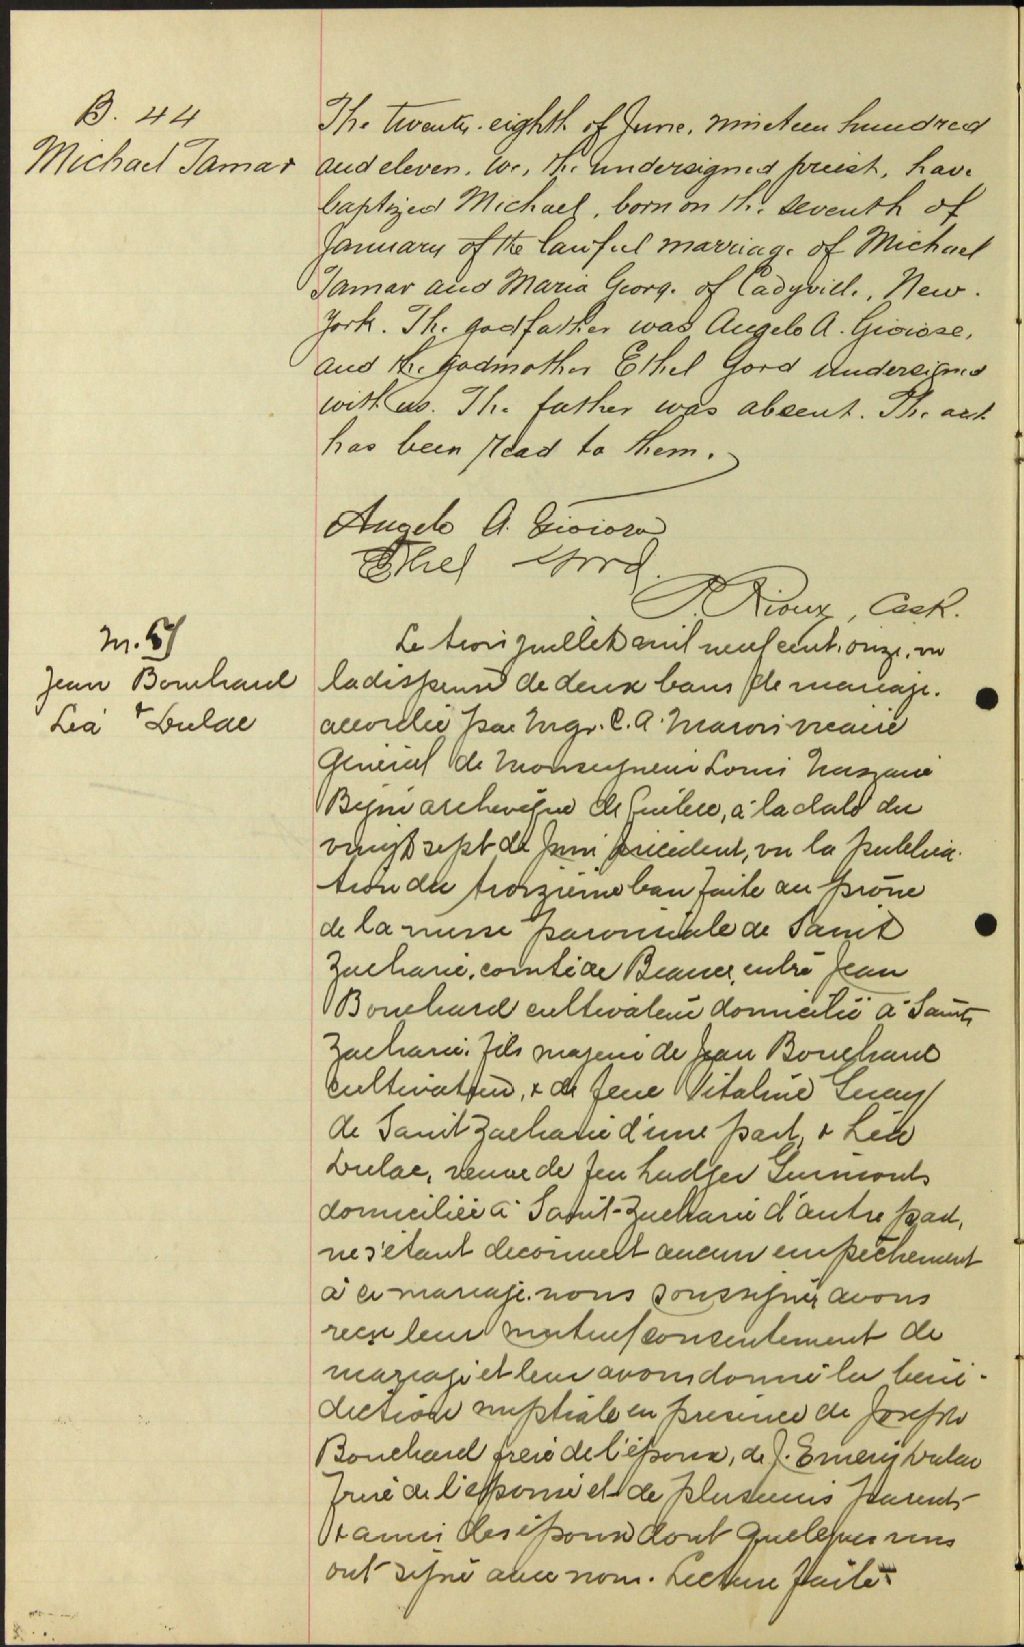 B. 44
Michael Tamar
The twenty-eighth of June, nineteen hundred
and eleven, we, the undersigned priest, have
baptized Michael, born on the seventh of
January of the lawful marriage of Michael
Tamar and Maria George of Cadyville, New-
York. The godfather was Angelo A. Gioiose,
and the godmother Ethel Gord undersigned
with us. The father was absent. The act
has been read to them.
Angelo A. Gioiosa
Ethel Gord.
P. Rioux, Cack.
M.
Jean Bouchard
& Léa Dulac
Le trois juillet mil neuf cent onze, vu
la dispense de deux bans de mariage
accordée par Mgr. C. A. Marois vicaire
Général de Monseigneur Louis Nazaire
Bégin archevêque de Québec, à la date du
vingt sept de juin précédent, vu la publica-
tion du troizième ban faite au prône
de la messe paroissiale de Saint
Zacharie, comté de Beauce, entre Jean
Bouchard cultivateur domicilié à Saint
Zacharie, fils majeur de Jean Bouchard
cultivateur, & de feue Vitaline Guay
de Saint Zacharie d'une part, & Léa
Dulac, veuve de feu Ludger Guimont
domiciliée à Saint-Zacharie d'autre part,
ne s'étant découvert aucun empêchement
à ce mariage, nous soussigné avons
reçu leur mutuel consentement de
mariage et leur avons donné la béné-
diction nuptiale en présence de Joseph
Bouchard frère de l'époux, de J. Emery Dulac
frère de l'épouse et de plusieurs parents
& amis des époux dont quelques uns
ont signé avec nous. Lecture faite.